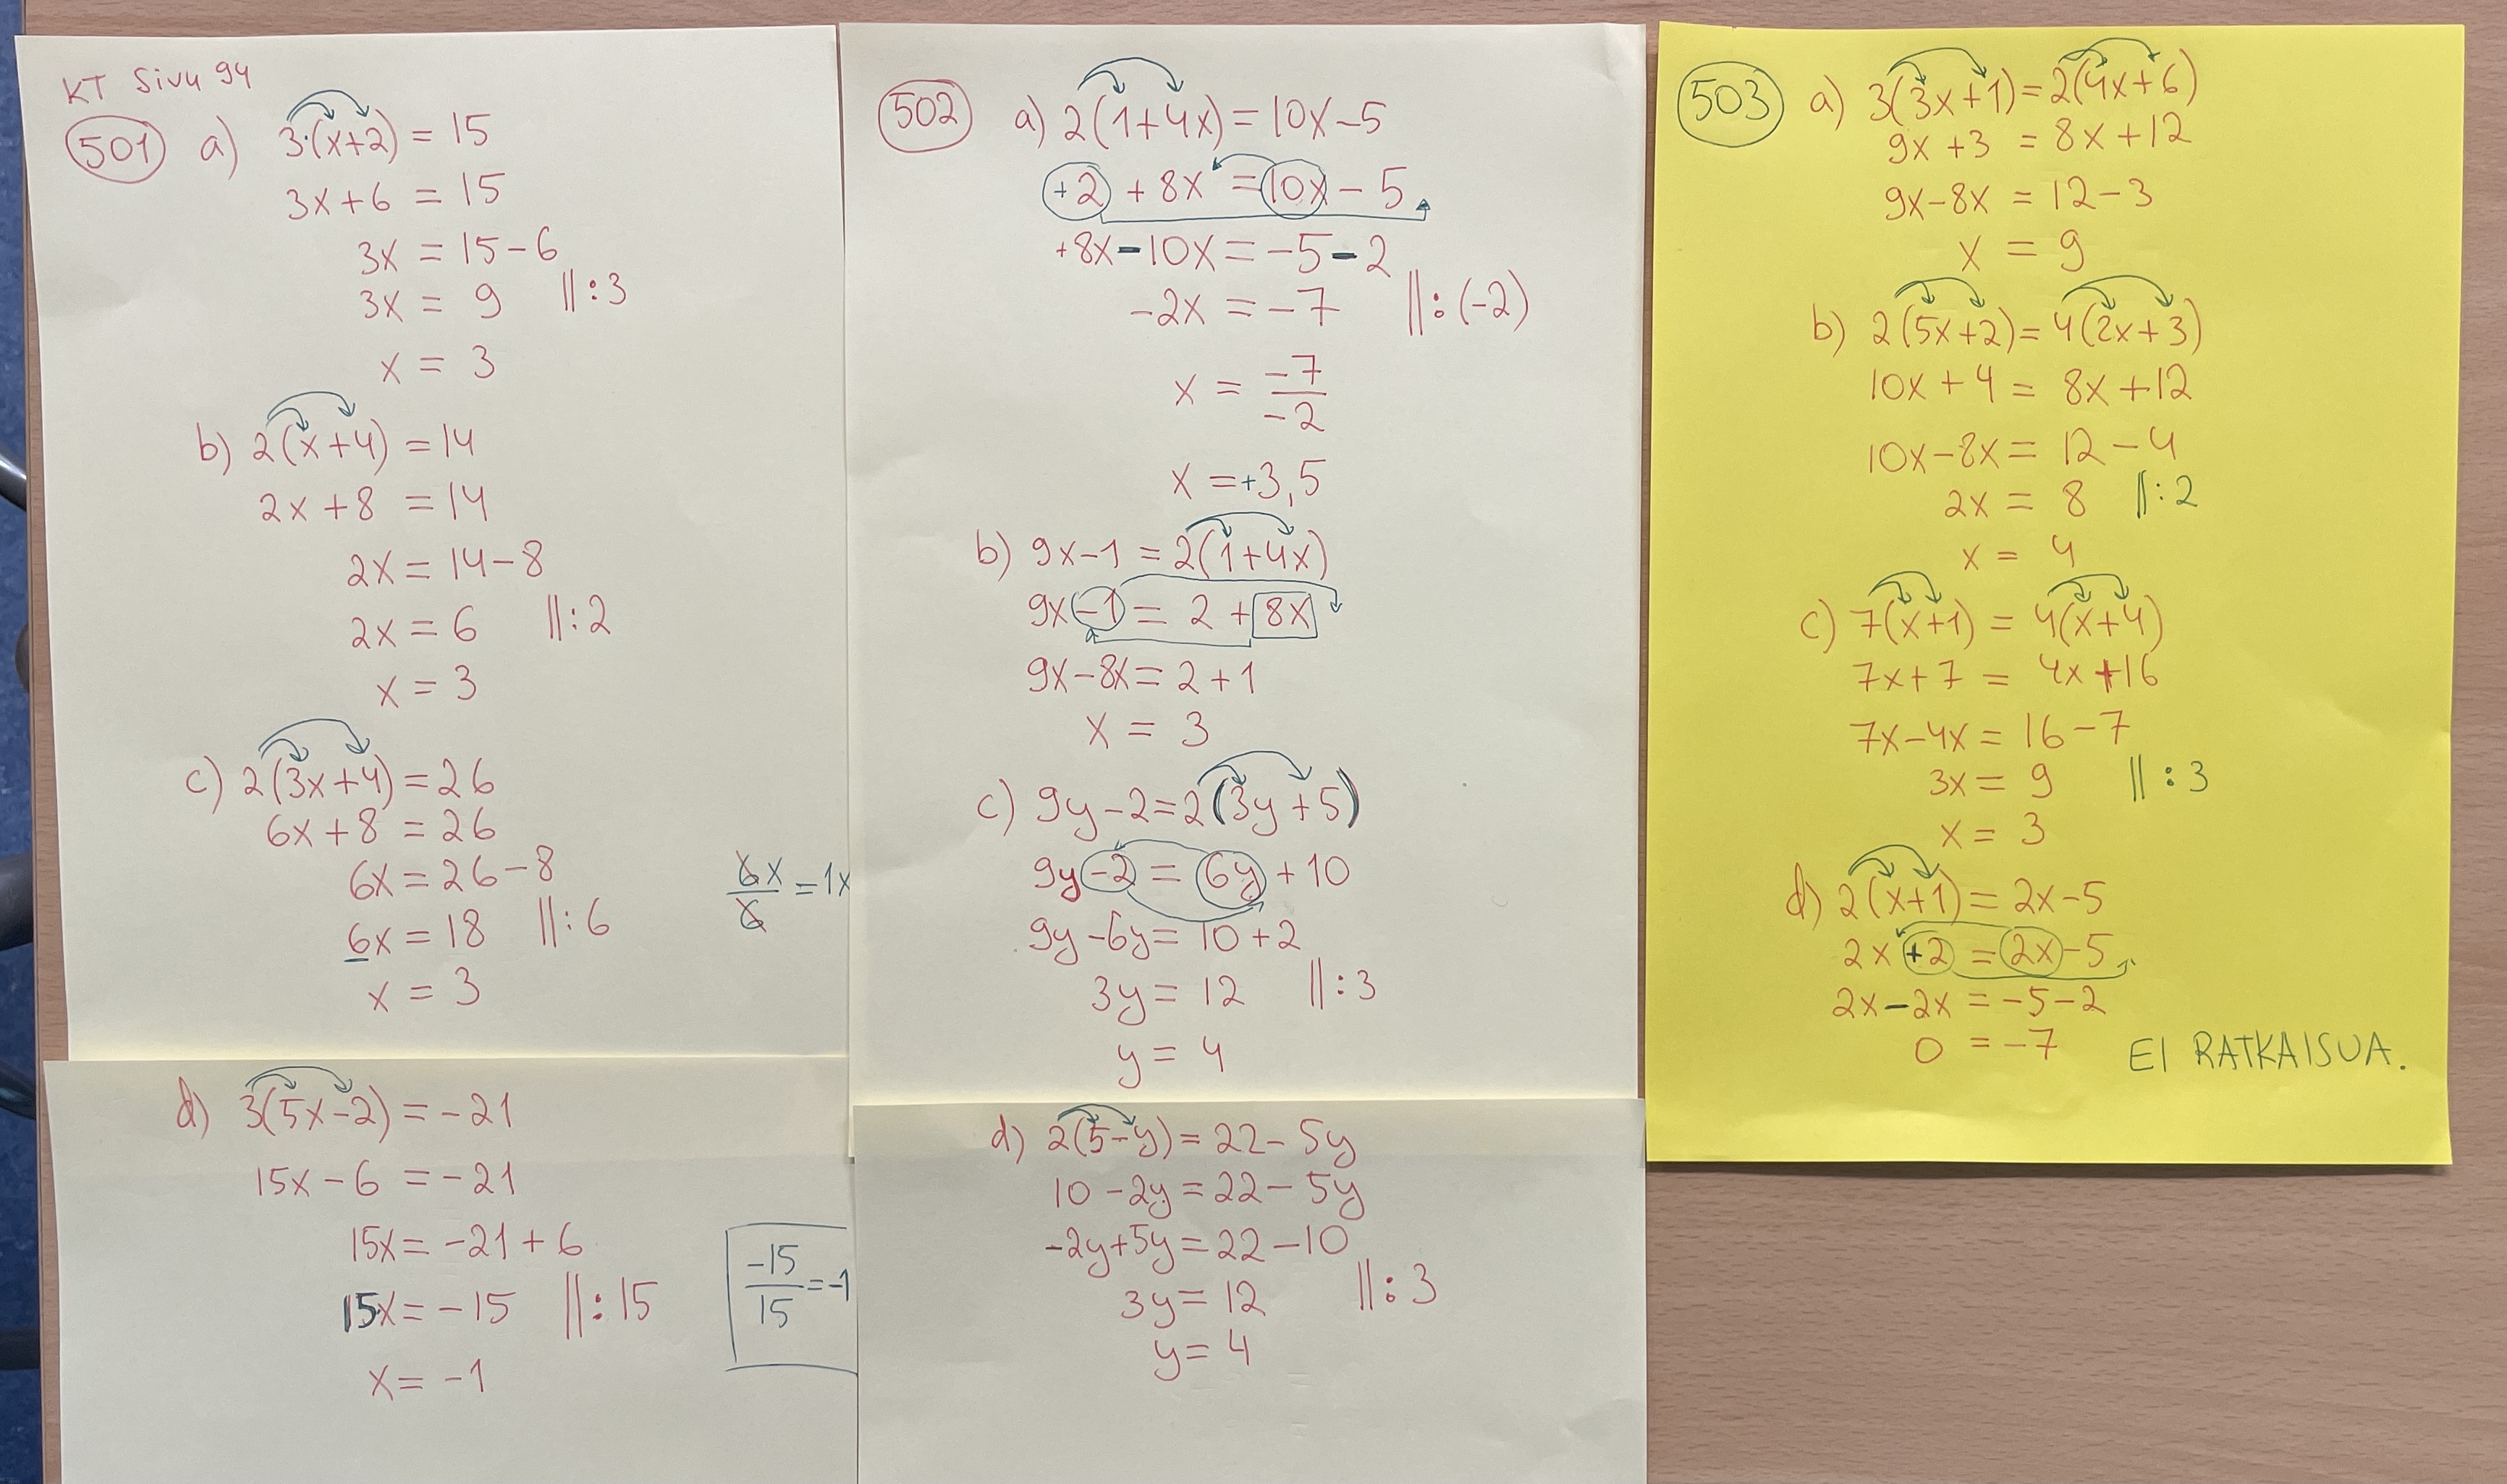 KT Sivu 94
501 a) 3·(x+2) = 15
3x+6 = 15
3x = 15-6
3x = 9 ||:3
x = 3
b) 2(x+4) = 14
2x+8 = 14
2x = 14-8
2x = 6 ||:2
x = 3
c) 2(3x+4) = 26
6x+8 = 26
6x = 26-8
6x = 18 ||:6
6x/6 = 1x
x = 3
d) 3(5x-2) = -21
15x-6 = -21
15x = -21+6
15x = -15 ||:15
-15/15 = -1
x = -1
502 a) 2(1+4x) = 10x-5
+2 +8x = 10x-5
+8x-10x = -5-2
-2x = -7 ||:(-2)
x = -7/-2
x = +3,5
b) 9x-1 = 2(1+4x)
9x-1 = 2+8x
9x-8x = 2+1
x = 3
c) 9y-2 = 2(3y+5)
9y-2 = 6y+10
9y-6y = 10+2
3y = 12 ||:3
y = 4
d) 2(5-y) = 22-5y
10-2y = 22-5y
-2y+5y = 22-10
3y = 12 ||:3
y = 4
503 a) 3(3x+1) = 2(4x+6)
9x+3 = 8x+12
9x-8x = 12-3
x = 9
b) 2(5x+2) = 4(2x+3)
10x+4 = 8x+12
10x-8x = 12-4
2x = 8 ||:2
x = 4
c) 7(x+1) = 4(x+4)
7x+7 = 4x+16
7x-4x = 16-7
3x = 9 ||:3
x = 3
d) 2(x+1) = 2x-5
2x+2 = 2x-5
2x-2x = -5-2
0 = -7 EI RATKAISUA.